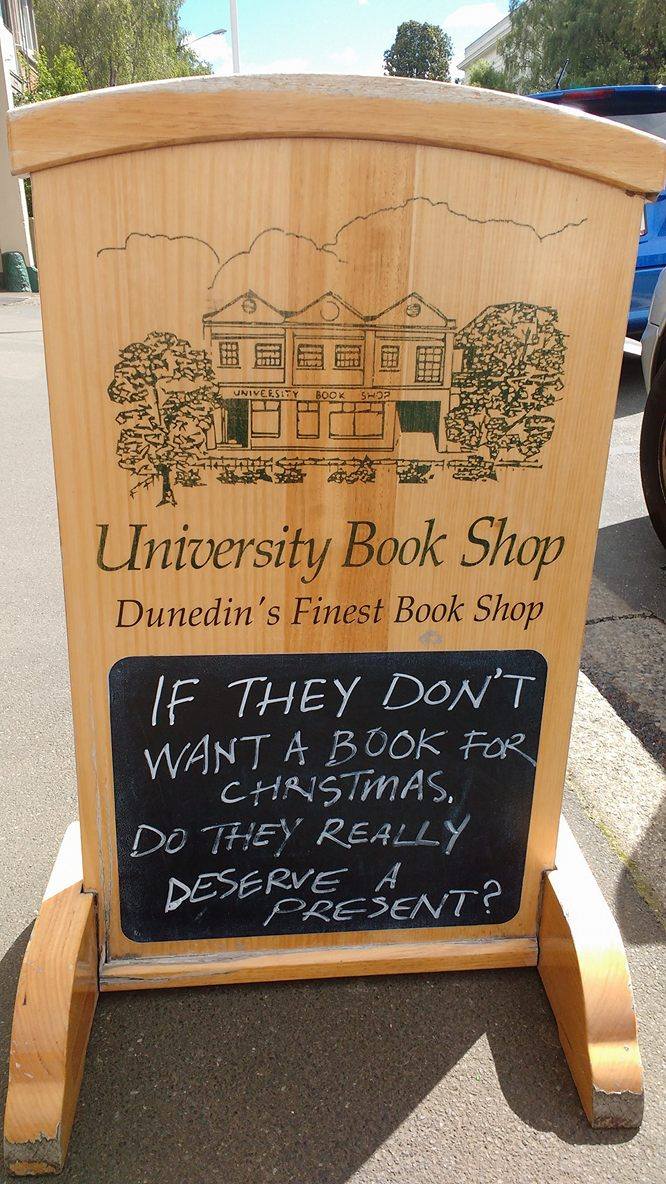 UNIVERSITY BOOK SHOP
University Book Shop
Dunedin's Finest Book Shop
IF THEY DON'T
WANT A BOOK FOR
CHRISTMAS,
DO THEY REALLY
DESERVE A
PRESENT?